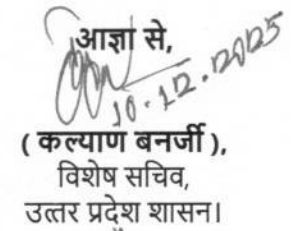 आज्ञा से,
10.12.2025
( कल्याण बनर्जी ),
विशेष सचिव,
उत्तर प्रदेश शासन।